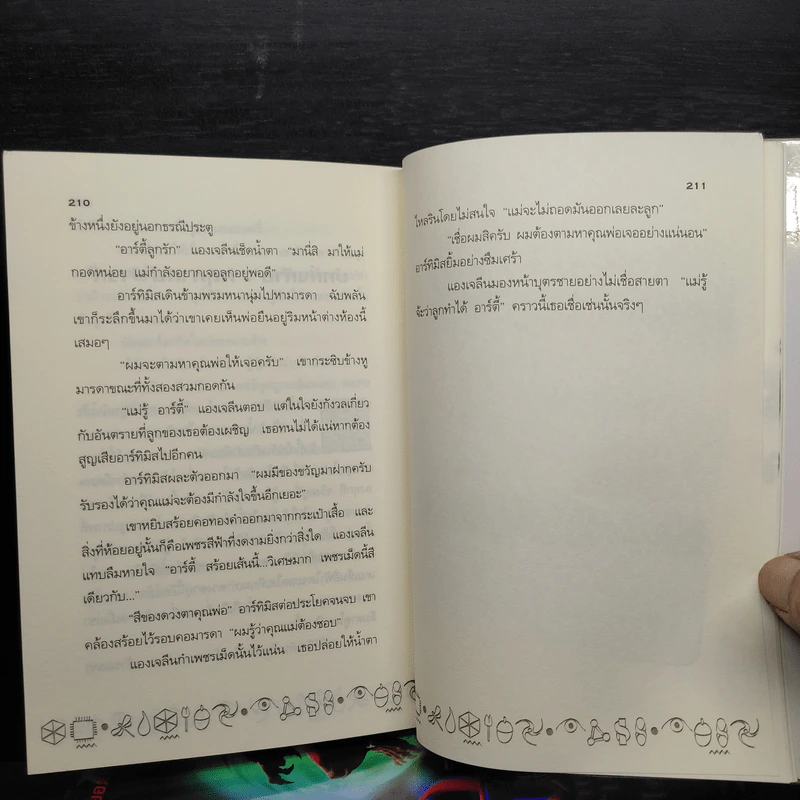 210
ข้างหนึ่งยังอยู่นอกธรณีประตู
"อาร์ตี้ลูกรัก" แองเจลีนเช็ดน้ำตา "มานี่สิ มาให้แม่
กอดหน่อย แม่กำลังอยากเจอลูกอยู่พอดี"
อาร์ทิมิสเดินข้ามพรมหนานุ่มไปหามารดา ฉับพลัน
เขาก็ระลึกขึ้นมาได้ว่าเขาเคยเห็นพ่อยืนอยู่ริมหน้าต่างห้องนี้
เสมอๆ
"ผมจะตามหาคุณพ่อให้เจอครับ" เขากระซิบข้างหู
มารดาขณะที่ทั้งสองสวมกอดกัน
"แม่รู้ อาร์ตี้" แองเจลีนตอบ แต่ในใจยังกังวลเกี่ยว
กับอันตรายที่ลูกของเธอต้องเผชิญ เธอทนไม่ได้แน่หากต้อง
สูญเสียอาร์ทิมิสไปอีกคน
อาร์ทิมิสผละตัวออกมา "ผมมีของขวัญมาฝากครับ
รับรองได้ว่าคุณแม่จะต้องมีกำลังใจขึ้นอีกเยอะ"
เขาหยิบสร้อยคอทองคำออกมาจากกระเป๋าเสื้อ และ
สิ่งที่ห้อยอยู่นั้นก็คือเพชรสีฟ้าที่งดงามยิ่งกว่าสิ่งใด แองเจลีน
แทบลืมหายใจ "อาร์ตี้ สร้อยเส้นนี้...วิเศษมาก เพชรเม็ดนี้สี
เดียวกับ..."
"สีของดวงตาคุณพ่อ" อาร์ทิมิสต่อประโยคจนจบ เขา
คล้องสร้อยไว้รอบคอมารดา "ผมรู้ว่าคุณแม่ต้องชอบ"
แองเจลีนกำเพชรเม็ดนั้นไว้แน่น เธอปล่อยให้น้ำตา
211
ไหลรินโดยไม่สนใจ "แม่จะไม่ถอดมันออกเลยละลูก"
"เชื่อผมสิครับ ผมต้องตามหาคุณพ่อเจออย่างแน่นอน"
อาร์ทิมิสยิ้มอย่างซึมเศร้า
แองเจลีนมองหน้าบุตรชายอย่างไม่เชื่อสายตา "แม่รู้
จ้ะว่าลูกทำได้ อาร์ตี้" คราวนี้เธอเชื่อเช่นนั้นจริงๆ